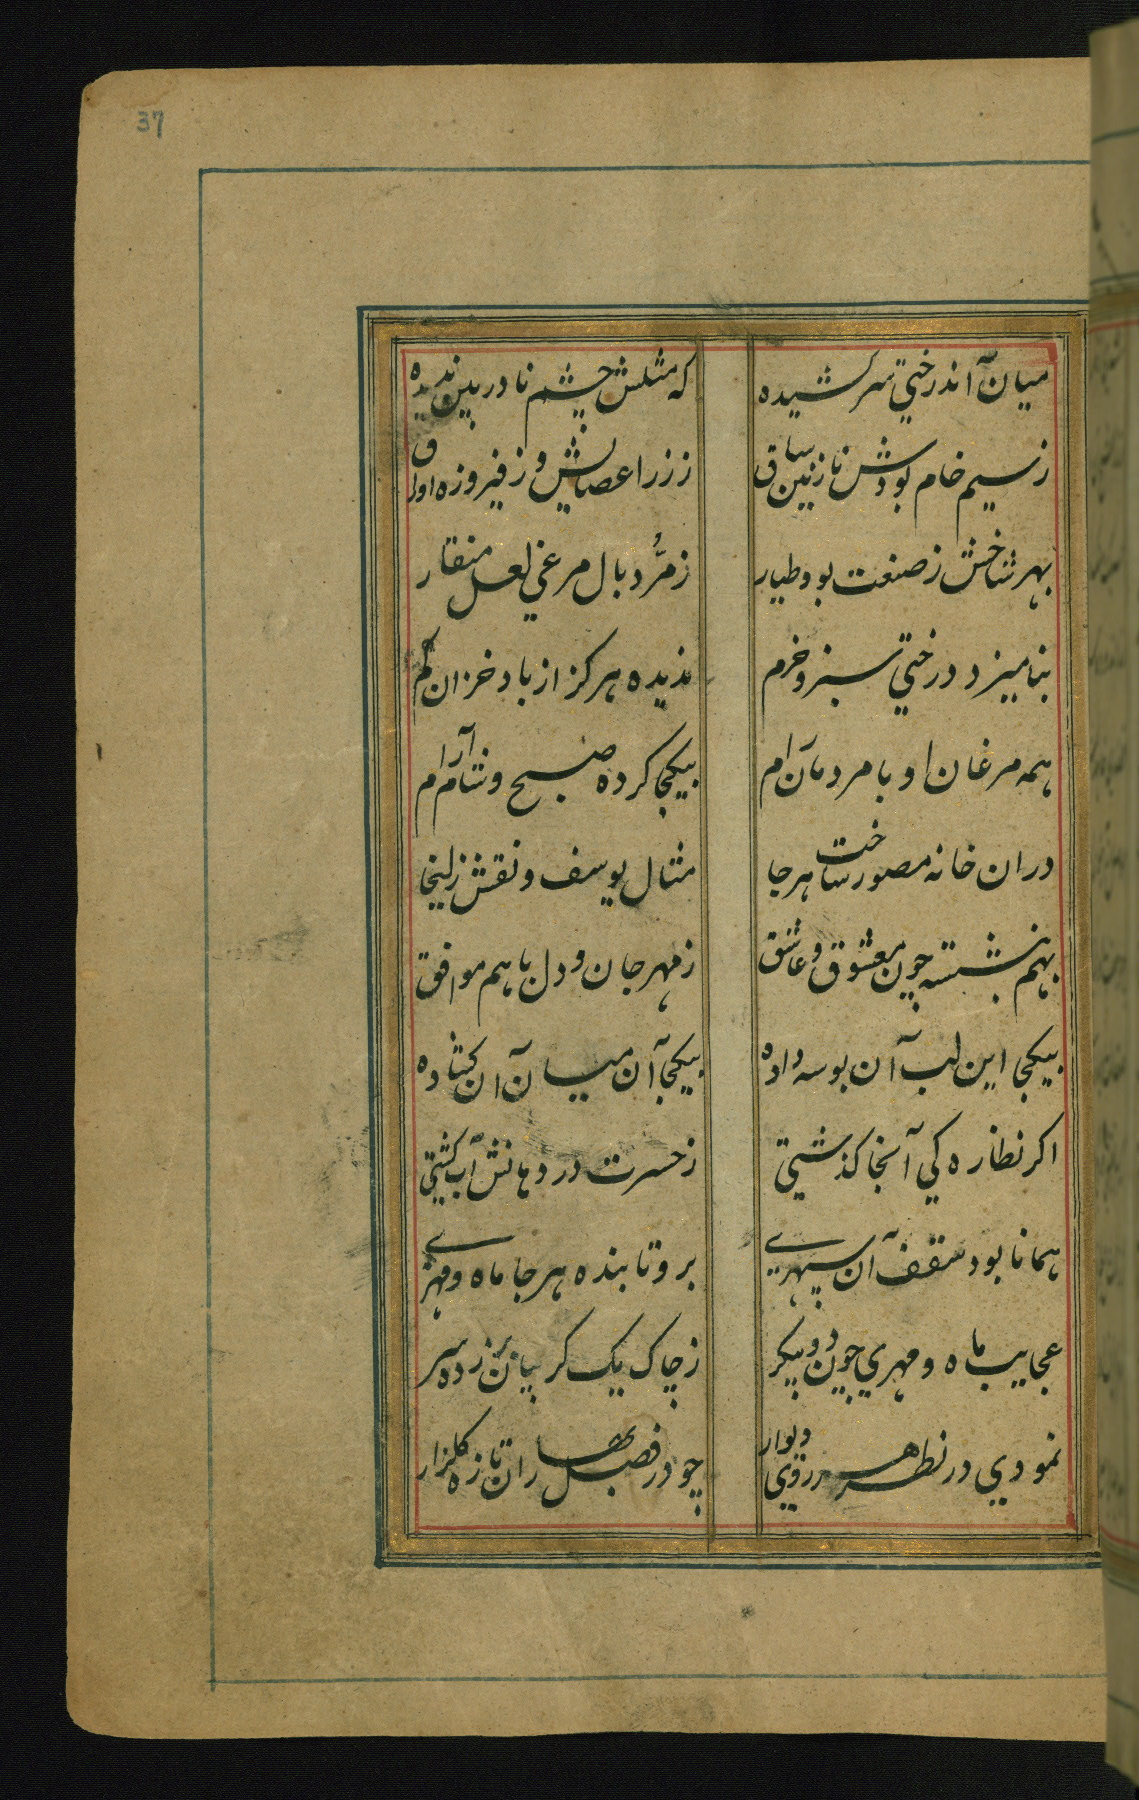 37
میان آن درختی سر کشیده که مثلش چشم نادر بین ندیده
ز سیم خام بودش نازنین ساق ز زر اعصانش و ز فیروزه اوراق
بهر شاخش ز صنعت بود طیار زمرّد بال مرغی لعل منقار
بنامیزد درختی سبز و خرم ندیده هرکز از باد خزان کم
همه مرغان او با مردمان رام بیکجا کرده صبح و شام آرام
دران خانه مصور ساخت هر جا مثال یوسف و نقش زلیخا
بهم بنشسته چون معشوق و عاشق ز مهر جان و دل با هم موافق
بیکجا این لب آن بوسه داده بیکجا آن میان آن کشاده
اکر نظاره کی آنجا کذشتی ز حسرت در دهانش آب کشتی
همانا بود سقف آن سپهری برو تابنده هر جا ماه و مهری
عجایب ماه و مهری چون دو پیکر ز چاک یک کریبان بر زده سر
نمودی در نظر هر روی دیوار چو در فصل بهاران تازه کلزار